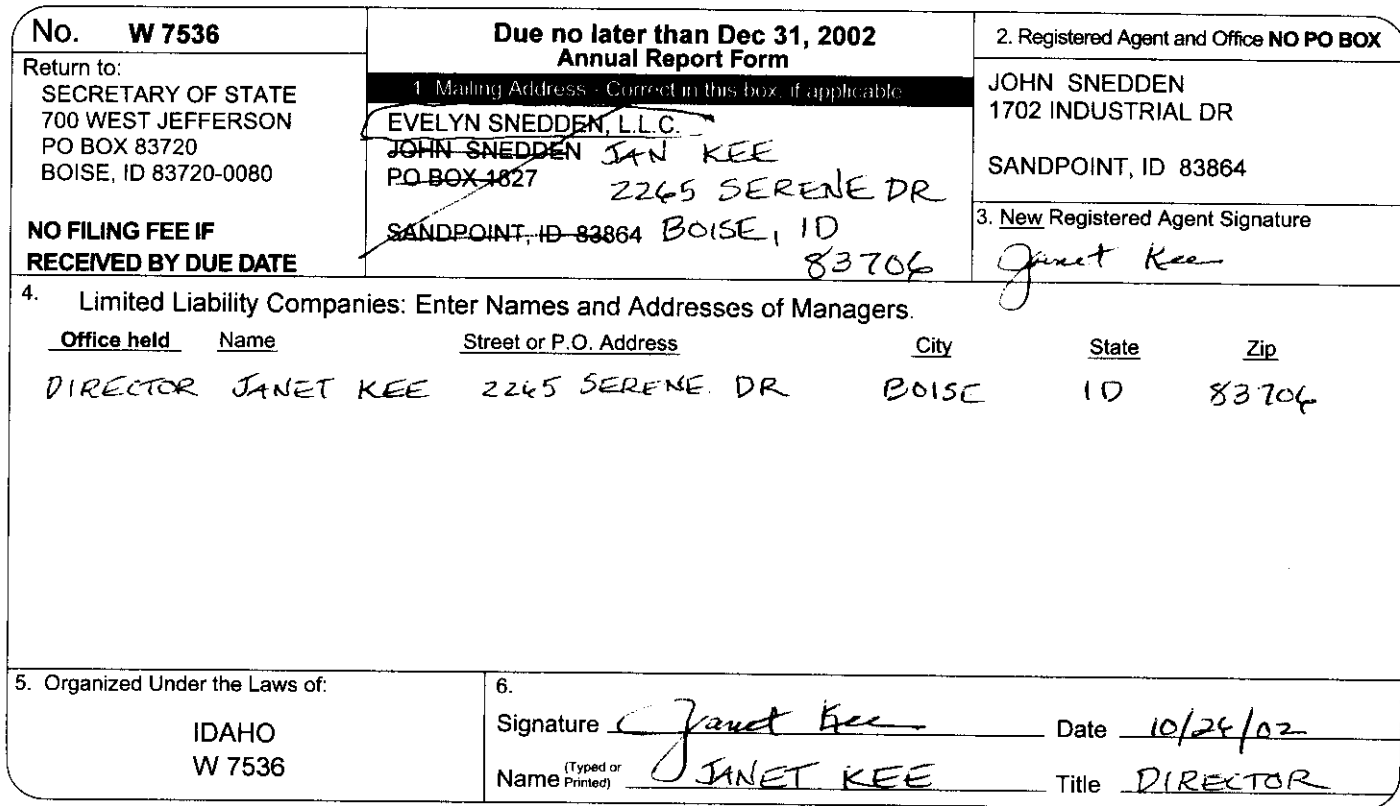 No. W 7536
Return to:
SECRETARY OF STATE
700 WEST JEFFERSON
PO BOX 83720
BOISE, ID 83720-0080
NO FILING FEE IF
RECEIVED BY DUE DATE
Due no later than Dec 31, 2002
Annual Report Form
1. Mailing Address - Correct in this box, if applicable
EVELYN SNEDDEN, L.L.C.
JOHN SNEDDEN JAN KEE
PO BOX 1827 2265 SERENE DR
SANDPOINT, ID 83864 BOISE, ID
83706
2. Registered Agent and Office NO PO BOX
JOHN SNEDDEN
1702 INDUSTRIAL DR
SANDPOINT, ID 83864
3. New Registered Agent Signature
Janet Kee
4. Limited Liability Companies: Enter Names and Addresses of Managers.
Office held Name Street or P.O. Address City State Zip
DIRECTOR JANET KEE 2265 SERENE DR BOISE ID 83706
5. Organized Under the Laws of:
IDAHO
W 7536
6.
Signature Janet Kee Date 10/26/02
Name (Typed or Printed) JANET KEE Title DIRECTOR